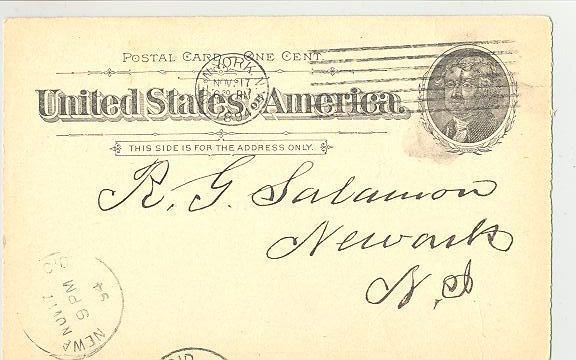 POSTAL CARD ONE CENT
United States of America.
THIS SIDE IS FOR THE ADDRESS ONLY.
YORK, N.
NOV 17
PM
1894
R. G. Salamon
Newark
N. J
NEWA
NOV 17
9 PM
94